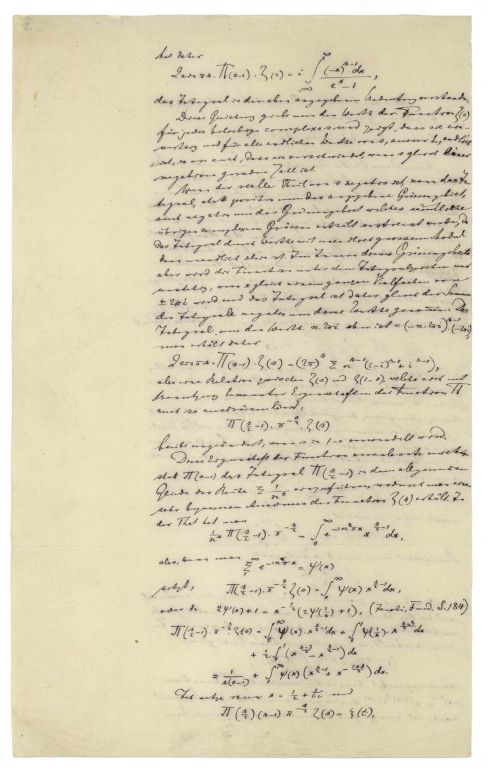 hat daher
2 sin πs . Π(s-1) . ζ(s) = i ∫_∞^∞ (-x)^{s-1} dx / (e^x - 1),
das Integral in der eben angegebenen Bedeutung verstanden.
Diese Gleichung giebt nun den Werth der Function ζ(s)
für jedes beliebige complexe s und zeigt, dass sie ein-
werthig und für alle endlichen Werthe von s, ausser 1, endlich
ist, so wie auch, dass sie verschwindet, wenn s gleich einer
negativen geraden Zahl ist.
Wenn der reelle Theil von s negativ ist, kann das In-
tegral, statt positiv um das angegebene Grössengebiet,
auch negativ um das Grössengebiet welches sämmtliche
übrigen complexen Grössen enthält erstreckt werden, da
das Integral durch Werthe mit unendlich grossem Modul
dann unendlich klein ist. Im Innern dieses Grössengebiets
aber wird die Function unter dem Integralzeichen nur
unstetig, wenn x gleich einem ganzen Vielfachen von
± 2πi wird und das Integral ist daher gleich der Summe
der Integrale negativ um diese Werthe genommen. Das
Integral um den Werth n 2πi aber ist = (-n . 2πi)^{s-1} . (-2πi),
man erhält daher
2 sin πs . Π(s-1) . ζ(s) = (2π)^s Σ n^{s-1} ((-i)^{s-1} + i^{s-1}),
also eine Relation zwischen ζ(s) und ζ(1-s), welche sich mit
Benutzung bekannter Eigenschaften der Function Π
auch so ausdrücken lässt:
Π(s/2 - 1) . π^{-s/2} . ζ(s)
bleibt ungeändert, wenn s in 1-s verwandelt wird.
Diese Eigenschaft der Function veranlasste mich
statt Π(s-1) das Integral Π(s/2 - 1) in dem allgemeinen
Gliede der Reihe Σ 1/n^s einzuführen, wodurch man einen
sehr bequemen Ausdruck der Function ζ(s) erhält. In
der That hat man
1/n^s Π(s/2 - 1) . π^{-s/2} = ∫_0^∞ e^{-n²πx} x^{s/2 - 1} dx,
also, wenn man Σ_1^∞ e^{-n²πx} = ψ(x)
setzt, Π(s/2 - 1) . π^{-s/2} ζ(s) = ∫_0^∞ ψ(x) x^{s/2 - 1} dx,
oder da 2ψ(x) + 1 = x^{-1/2} (2ψ(1/x) + 1), (Jacobi, Fund. S. 184)
Π(s/2 - 1) . π^{-s/2} ζ(s) = ∫_1^∞ ψ(x) . x^{s/2 - 1} dx + ∫_0^1 ψ(1/x) . x^{(s-3)/2} dx
+ 1/2 ∫_0^1 (x^{(s-3)/2} - x^{s/2 - 1}) dx
= 1/(s(s-1)) + ∫_1^∞ ψ(x) (x^{s/2 - 1} + x^{-(1+s)/2}) dx.
Ich setze nun s = 1/2 + ti und
Π(s/2) (s-1) π^{-s/2} ζ(s) = ξ(t),